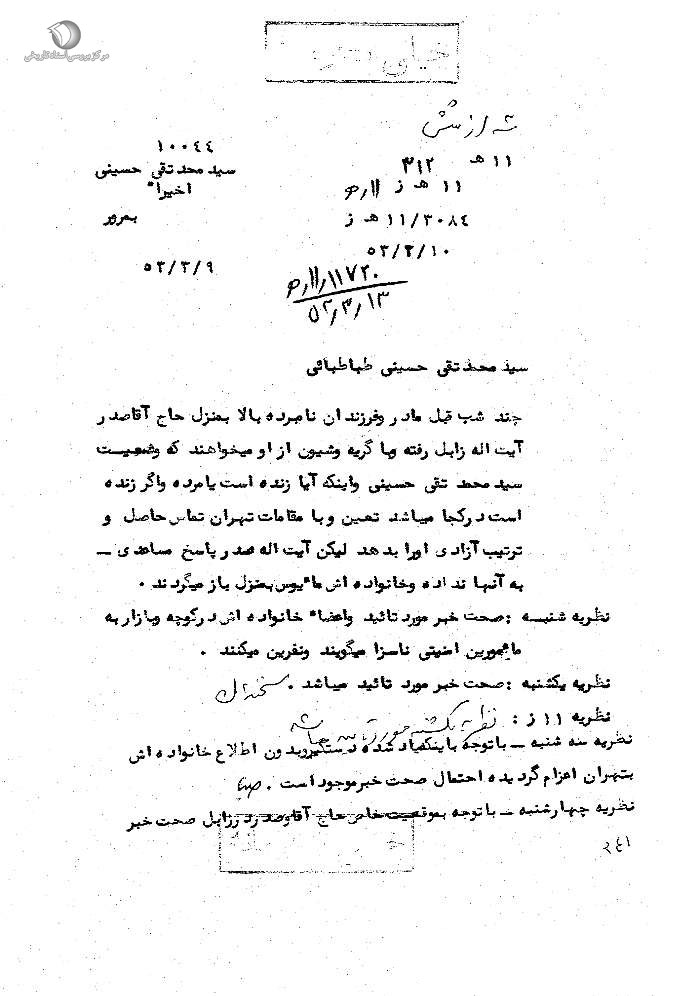 مرکز بررسی اسناد تاریخی
خیلی
۱۰۰۴۴
۱۱ هـ ۳۱۲
سید محمد تقی حسینی
۱۱ هـ ز
اخیرا"
۱۱/۳۰۸۴ هـ ز
بمرور
۵۳/۳/۱۰
۵۳/۳/۹
۱۱۷۲۰/۱۱هـ
۵۳/۳/۱۳
سید محمد تقی حسینی طباطبائی
چند شب قبل مادر وفرزندان نامبرده بالا بمنزل حاج آقاصدر
آیت اله زابل رفته وبا گریه وشیون از او میخواهند که وضعیت
سید محمد تقی حسینی واینکه آیا زنده است یامرده واگر زنده
است درکجا میباشد تعیین وبا مقامات تهران تماس حاصل و
ترتیب آزادی اورا بدهد لیکن آیت اله صدر پاسخ مساعدی ــ
به آنها نداده وخانواده اش مأیوس بمنزل باز میگردند .
نظریه شنبه : صحت خبر مورد تائید واعضاء خانواده اش درکوچه وبازار به
مأمورین امنیتی ناسزا میگویند ونفرین میکنند .
نظریه یکشنبه : صحت خبر مورد تائید میباشد .
نظریه ۱۱ ز : نظریه یکشنبه مورد تایید میباشد
نظریه سه شنبه ــ با توجه باینکه یاد شده دستگیر وبدون اطلاع خانواده اش
بتهران اعزام گردیده احتمال صحت خبر موجود است .
نظریه چهارشنبه ــ با توجه بموقعیت خاص حاج آقا صدر در زابل صحت خبر
۲۴۱